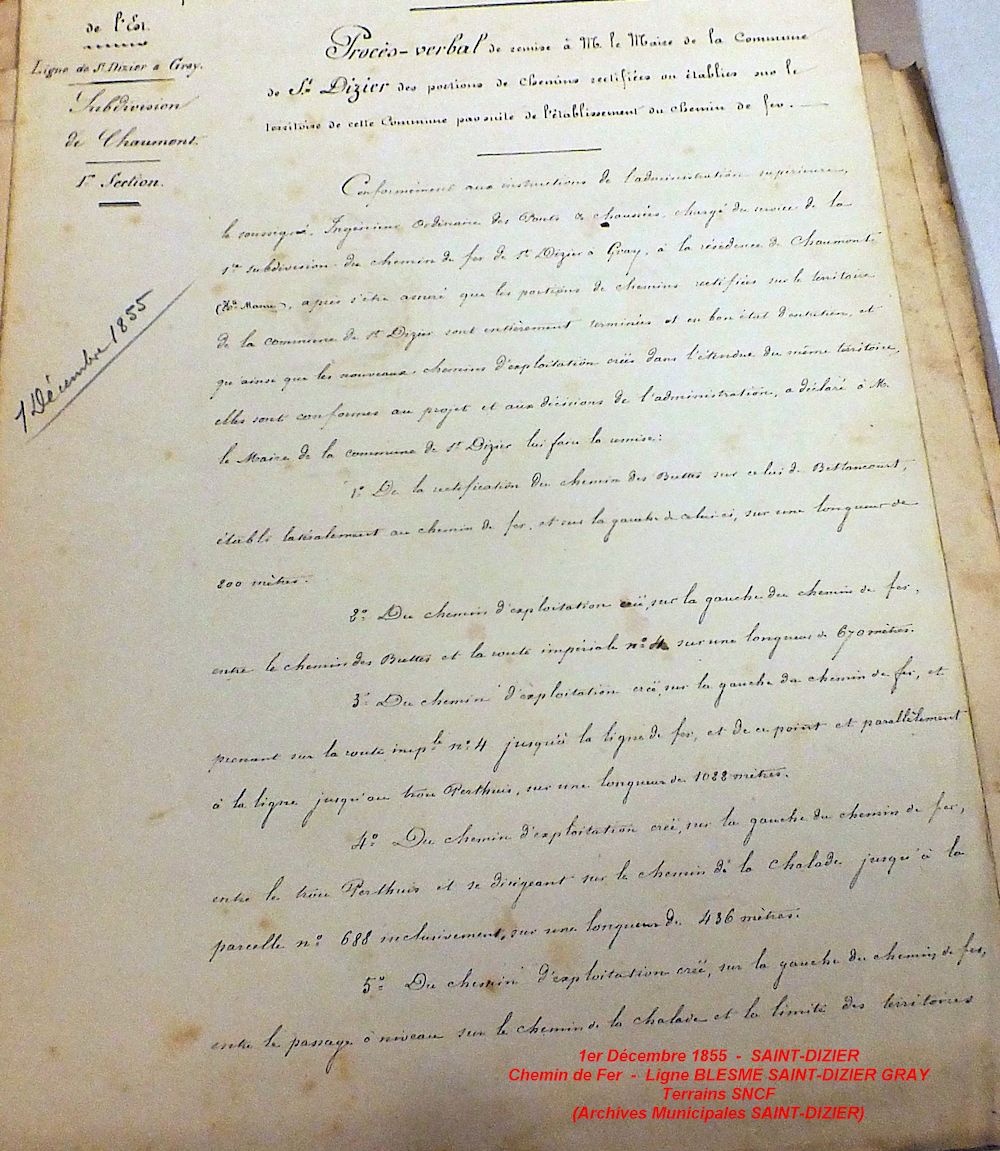 de l'Est.
Ligne de St. Dizier à Gray.
Subdivision
de Chaumont.
1re Section.
1 Décembre 1855
Procès-verbal de remise à M. le Maire de la Commune
de St. Dizier des portions de chemins rectifiées ou établies sur le
territoire de cette Commune par suite de l'établissement du chemin de fer.
Conformément aux instructions de l'administration supérieure,
le soussigné, Ingénieur Ordinaire des Ponts & chaussées, chargé du service de la
1re subdivision du chemin de fer de St Dizier à Gray, à la résidence de Chaumont
(Hte Marne), après s'être assuré que les portions de chemins rectifiées sur le territoire
de la commune de St Dizier sont entièrement terminées et en bon état d'entretien, et
qu'ainsi que les nouveaux chemins d'exploitation créés dans l'étendue du même territoire,
elles sont conformes au projet et aux décisions de l'administration, a déclaré à M.
le Maire de la commune de St Dizier lui faire la remise:
1o De la rectification du chemin des Buttes sur celui de Bettancourt,
établi latéralement au chemin de fer, et sur la gauche de celui-ci, sur une longueur de
800 mètres.
2o Du chemin d'exploitation créé, sur la gauche du chemin de fer,
entre le chemin des Buttes et la route impériale no 4 sur une longueur de 670 mètres.
3o Du chemin d'exploitation créé, sur la gauche du chemin de fer, et
prenant sur la route imple no 4 jusqu'à la ligne de fer, et de ce point et parallèlement
à la ligne jusqu'au trou Perthuis, sur une longueur de 1088 mètres.
4o Du chemin d'exploitation créé, sur la gauche du chemin de fer,
entre le trou Perthuis et se dirigeant sur le chemin de la Chalade jusqu'à la
parcelle no 688 inclusivement, sur une longueur de 436 mètres.
5o Du chemin d'exploitation créé, sur la gauche du chemin de fer,
entre le passage à niveau sur le chemin de la chalade et la limite des territoires
1er Décembre 1855 - SAINT-DIZIER
Chemin de Fer - Ligne BLESME SAINT-DIZIER GRAY
Terrains SNCF
(Archives Municipales SAINT-DIZIER)